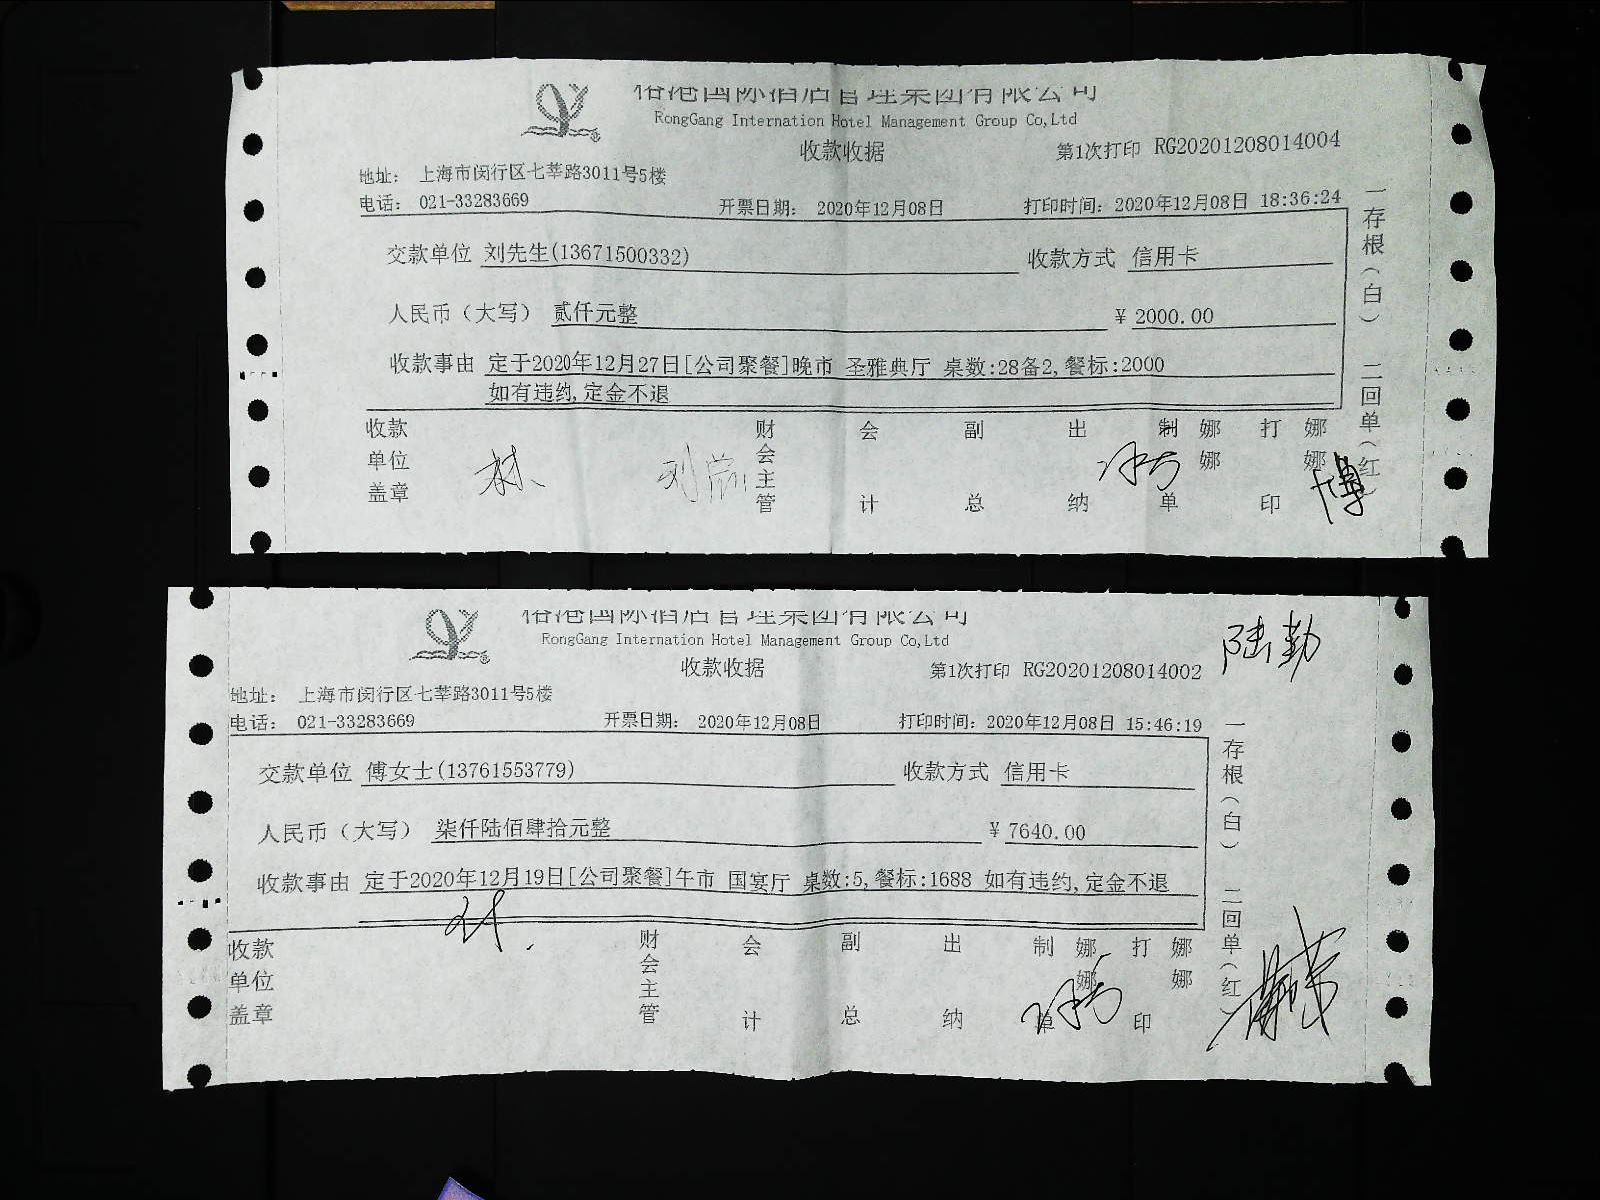 榕港国际酒店管理集团有限公司
RongGang Internation Hotel Management Group Co,Ltd
收款收据 第1次打印 RG20201208014004
地址： 上海市闵行区七莘路3011号5楼
电话： 021-33283669 开票日期： 2020年12月08日 打印时间：2020年12月08日 18:36:24
交款单位 刘先生(13671500332) 收款方式 信用卡
人民币（大写） 贰仟元整 ¥ 2000.00
收款事由 定于2020年12月27日[公司聚餐]晚市 圣雅典厅 桌数:28备2,餐标:2000
如有违约,定金不退
收款单位盖章 财会主管 会计 副总 出纳 制单 娜娜 打印 娜娜
林
一存根（白） 二回单（红）
榕港国际酒店管理集团有限公司
RongGang Internation Hotel Management Group Co,Ltd
陆勤
收款收据 第1次打印 RG20201208014002
地址： 上海市闵行区七莘路3011号5楼
电话： 021-33283669 开票日期： 2020年12月08日 打印时间：2020年12月08日 15:46:19
交款单位 傅女士(13761553779) 收款方式 信用卡
人民币（大写） 柒仟陆佰肆拾元整 ¥ 7640.00
收款事由 定于2020年12月19日[公司聚餐]午市 国宴厅 桌数:5,餐标:1688 如有违约,定金不退
收款单位盖章 财会主管 会计 副总 出纳 制单 娜娜 打印 娜娜
一存根（白） 二回单（红）